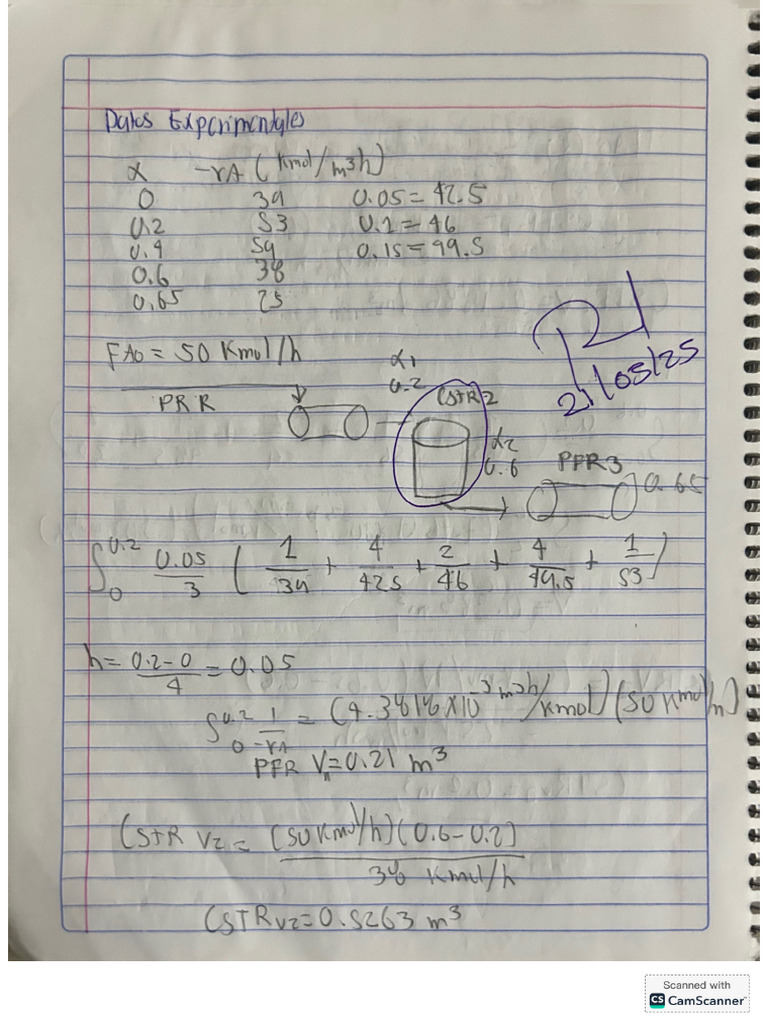 Datos Experimentales
α -rA (Kmol/m3h)
0 39 0.05 = 42.5
0.2 53 0.1 = 46
0.4 59 0.15 = 49.5
0.6 38
0.65 25
FA0 = 50 Kmol/h
α1
0.2
PRR
CSTR 2
α2
0.6
PFR3
0.65
21/05/25
∫0 0.2 0.05/3 ( 1/39 + 4/425 + 2/46 + 4/49.5 + 1/53 )
h = 0.2-0/4 = 0.05
∫0 0.2 1/-rA = (4.3818 X10-3 m3h/Kmol) (50 Kmol/h)
PFR V1=0.21 m3
CSTR V2 = (50 Kmol/h) (0.6-0.2) / 38 Kmol/h
CSTR V2=0.5263 m3
Scanned with
CS CamScanner